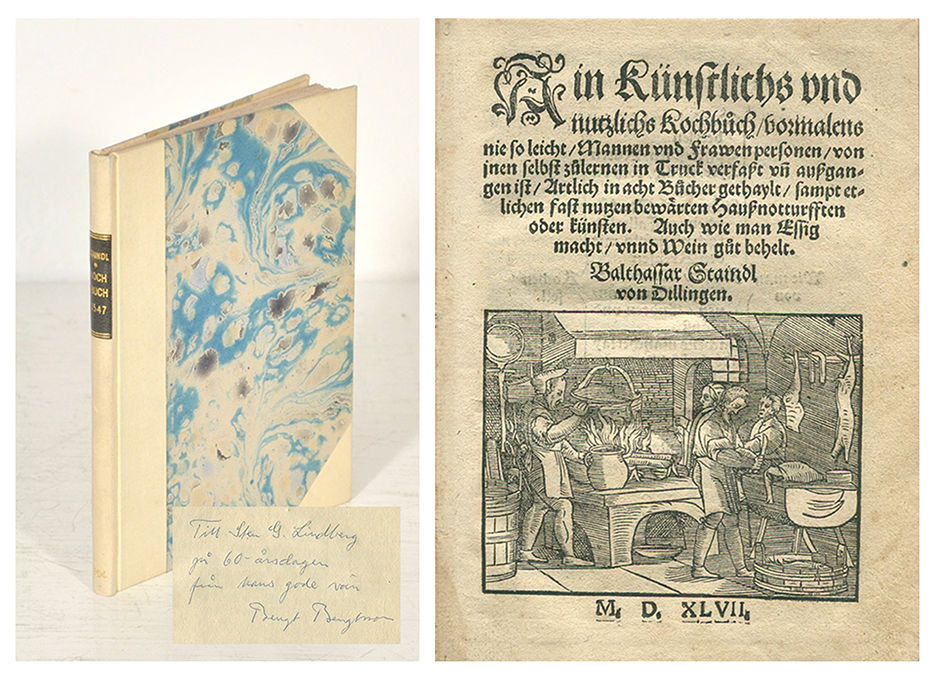 AINDL
KOCH
BUCH
1547
Till Sten G. Lindberg
på 60-årsdagen
från hans gode vän
Bengt Bengtsson
Ain Künſtlichs vnd
nutzlichs Kochbuͦch/vormalens
nie ſo leicht/Mannen vnd Frawen perſonen/von
jnen ſelbſt zuͦlernen in Truck verfaßt vñ außgan-
gen iſt/Artlich in acht Buͤcher gethaylt/ſampt et-
lichen faſt nutzen bewaͤrten Haußnotturfften
oder kuͤnſten. Auch wie man Eſſig
macht/vnnd Wein guͦt behelt.
Balthaſſar Staindl
von Dillingen.
M. D. XLVII.